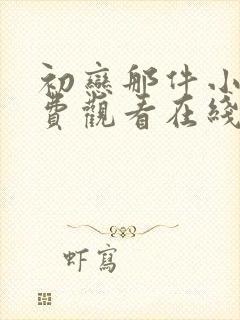 初戀那件小
費觀看在綫
虾寫